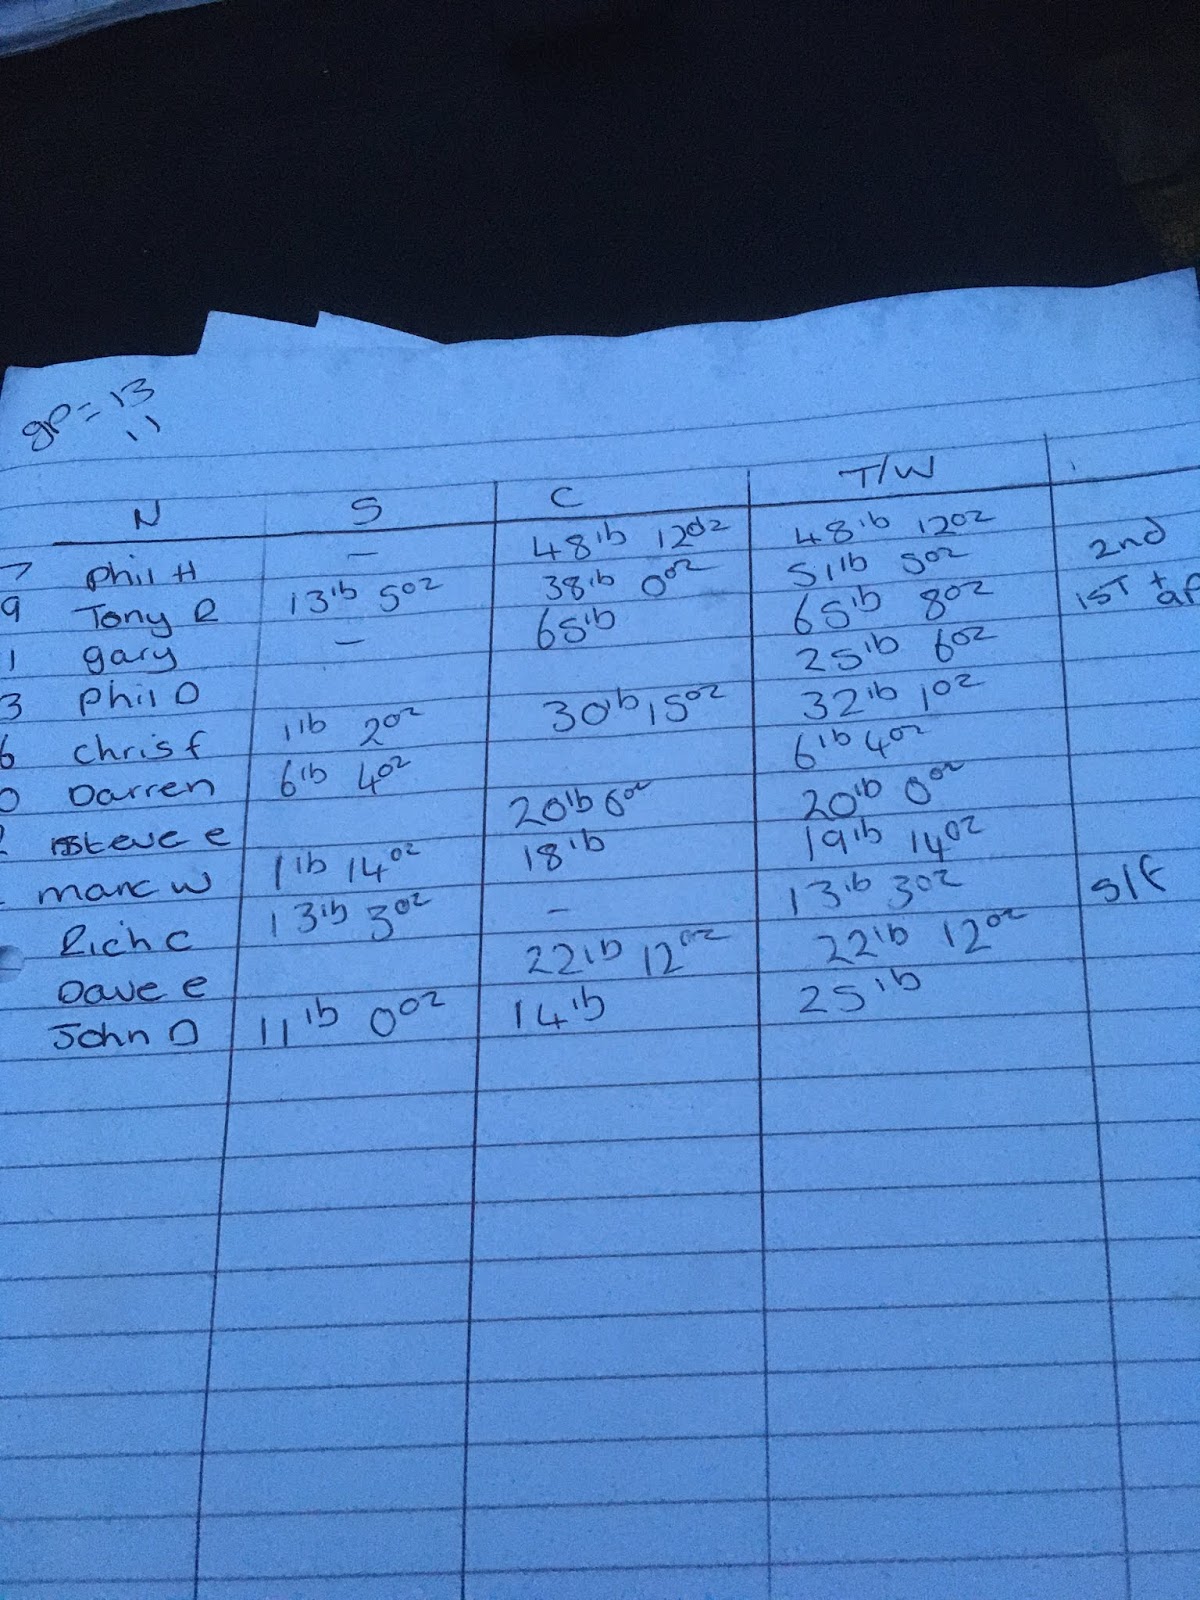 gp = 13
11
N S C T/W
7 Phil H - 48lb 12oz 48lb 12oz
9 Tony R 13lb 5oz 38lb 0oz 51lb 5oz 2nd
1 gary - 65lb 65lb 8oz 1ST +
3 Phil D 25lb 6oz
6 Chris f 1lb 2oz 30lb 15oz 32lb 1oz
0 Darren 6lb 4oz 6lb 4oz
Steve e 20lb 0oz 20lb 0oz
marc w 1lb 14oz 18lb 19lb 14oz
Rich C 13lb 3oz - 13lb 3oz S/F
Dave e 22lb 12oz 22lb 12oz
John D 11lb 0oz 14lb 25lb